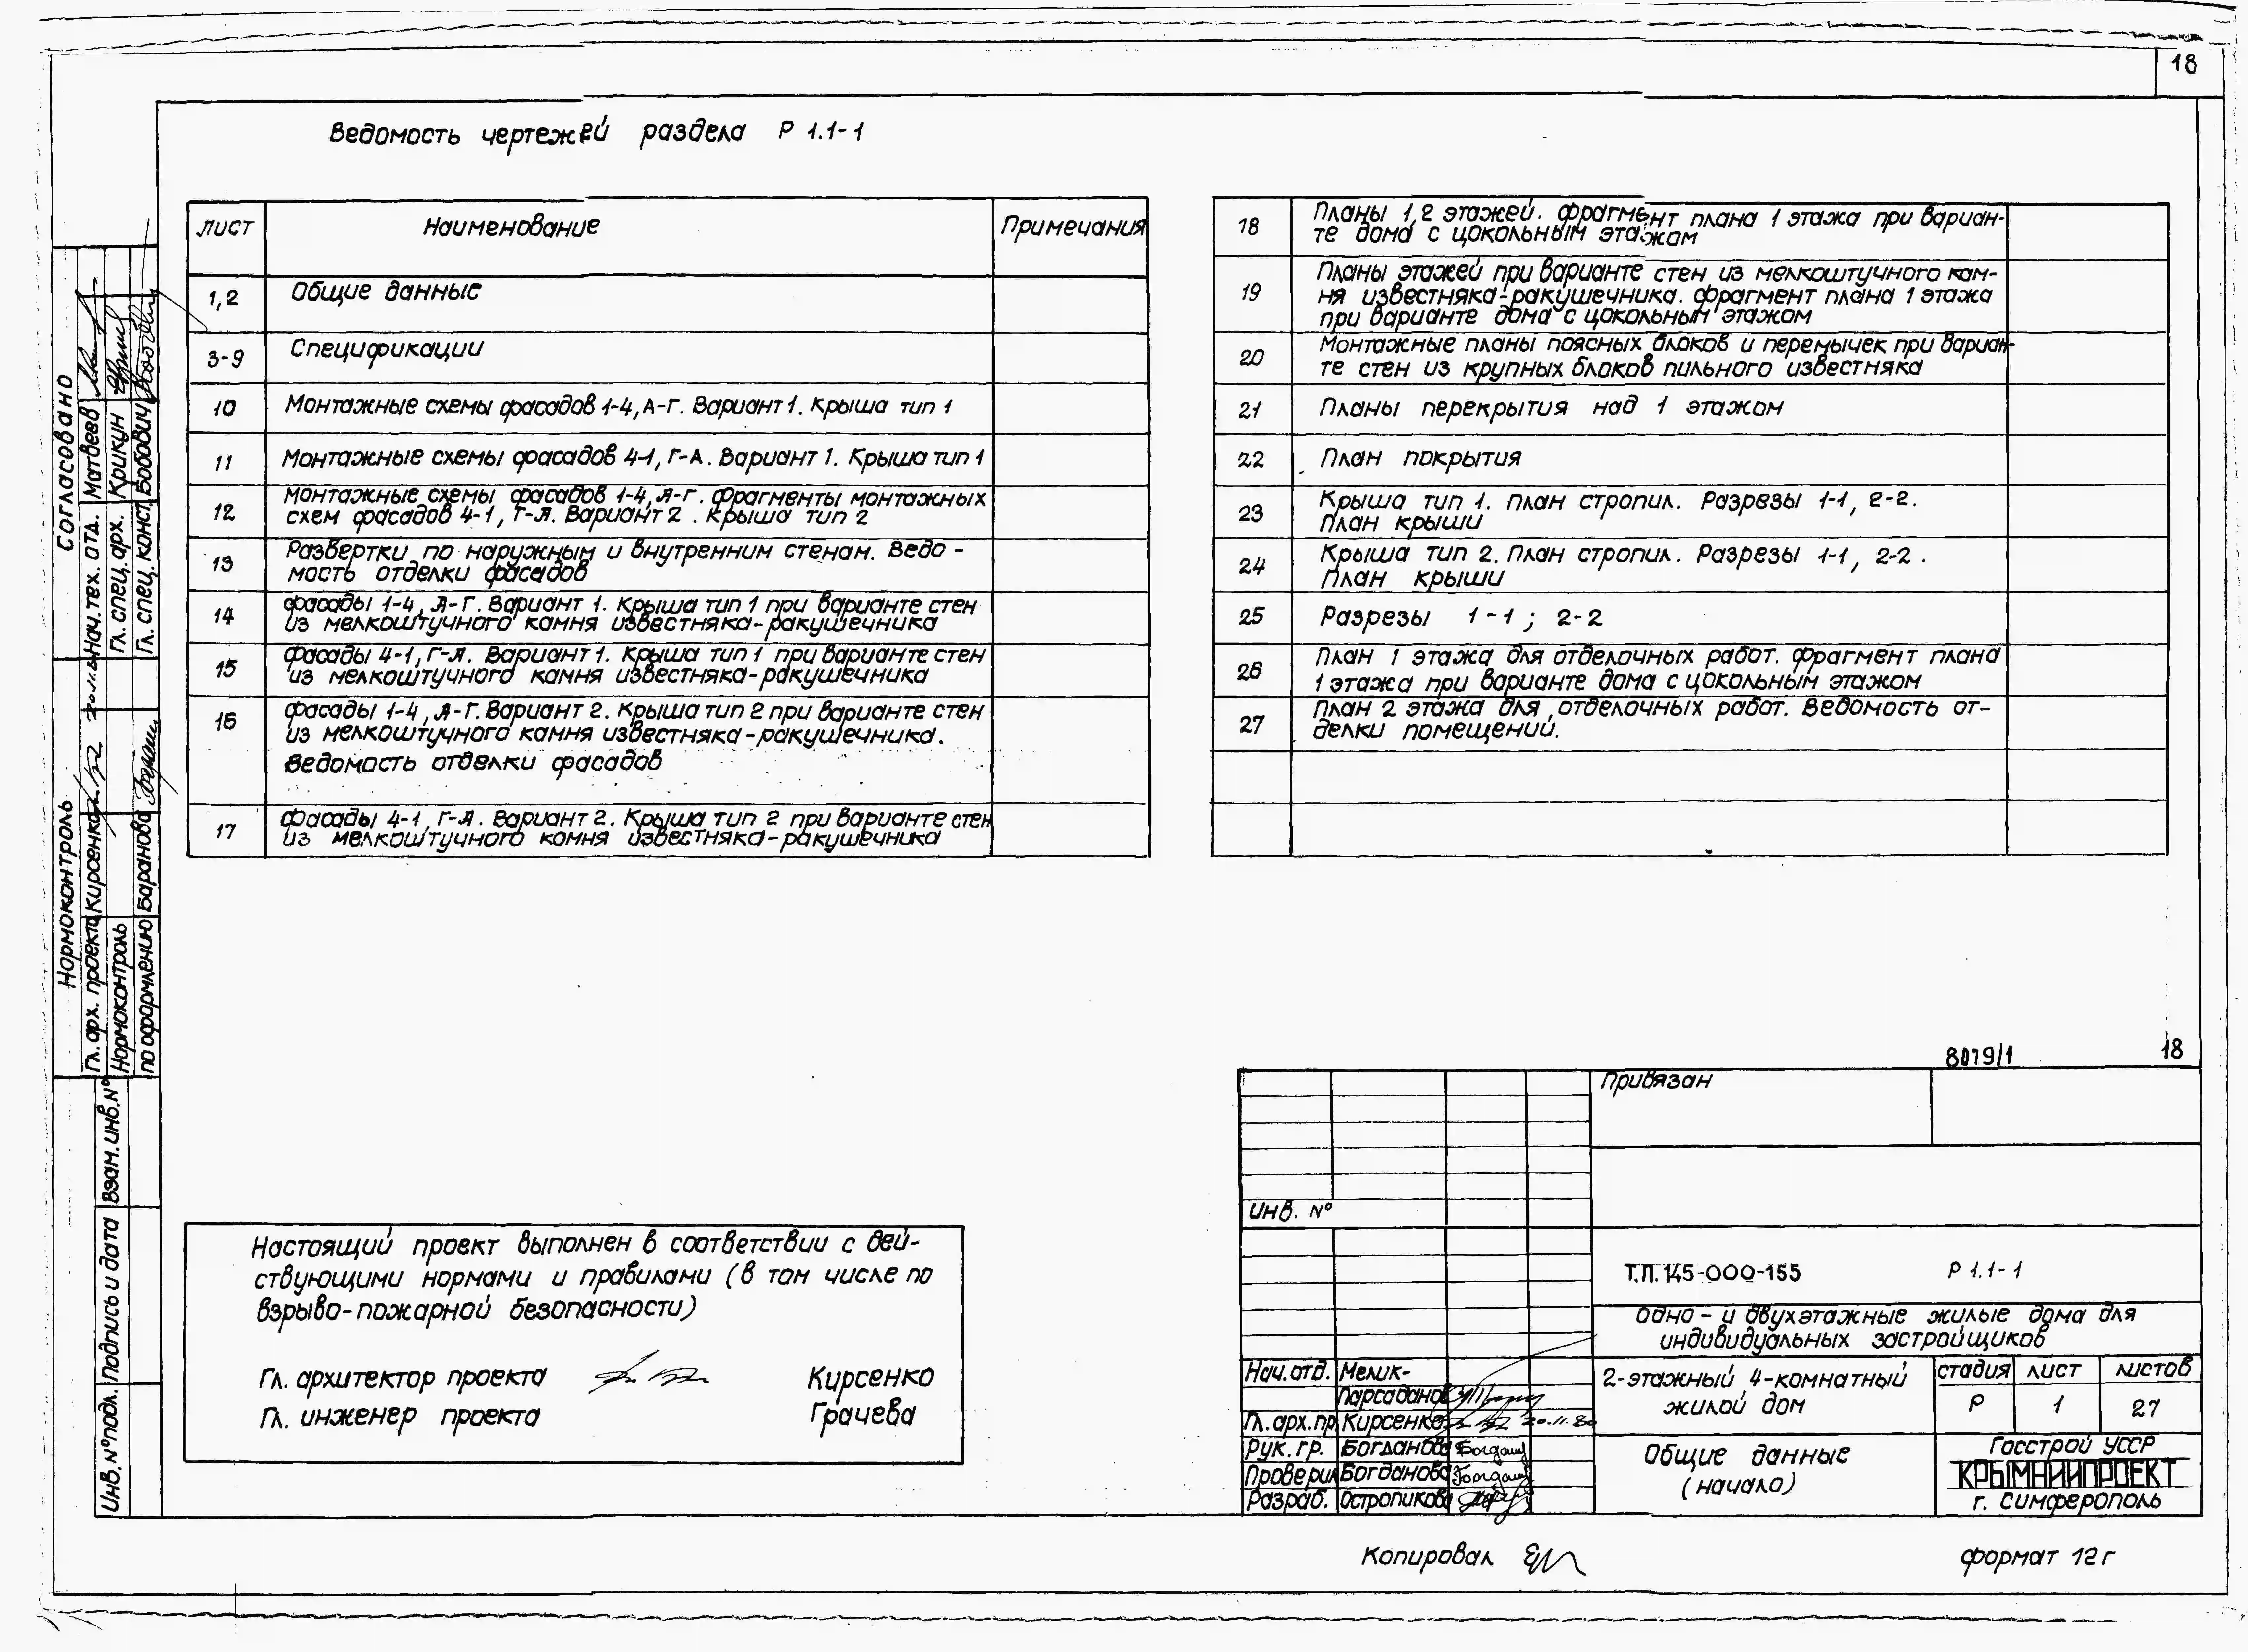 18
Ведомость чертежей раздела Р 1.1-1
лист Наименование Примечания
1,2 Общие данные
3-9 Спецификации
10 Монтажные схемы фасадов 1-4, А-Г. Вариант 1. Крыша тип 1
11 Монтажные схемы фасадов 4-1, Г-А. Вариант 1. Крыша тип 1
12 Монтажные схемы фасадов 1-4, А-Г. Фрагменты монтажных
схем фасадов 4-1, Г-А. Вариант 2. Крыша тип 2
13 Развертки по наружным и внутренним стенам. Ведо-
мость отделки фасадов
14 Фасады 1-4, А-Г. Вариант 1. Крыша тип 1 при варианте стен
из мелкоштучного камня известняка-ракушечника
15 Фасады 4-1, Г-А. Вариант 1. Крыша тип 1 при варианте стен
из мелкоштучного камня известняка-ракушечника
16 Фасады 1-4, А-Г. Вариант 2. Крыша тип 2 при варианте стен
из мелкоштучного камня известняка-ракушечника.
Ведомость отделки фасадов
17 Фасады 4-1, Г-А. Вариант 2. Крыша тип 2 при варианте стен
из мелкоштучного камня известняка-ракушечника
18 Планы 1,2 этажей. Фрагмент плана 1 этажа при вариан-
те дома с цокольным этажом
19 Планы этажей при варианте стен из мелкоштучного кам-
ня известняка-ракушечника. Фрагмент плана 1 этажа
при варианте дома с цокольным этажом
20 Монтажные планы поясных блоков и перемычек при вариан-
те стен из крупных блоков пильного известняка
21 Планы перекрытия над 1 этажом
22 План покрытия
23 Крыша тип 1. План стропил. Разрезы 1-1, 2-2.
План крыши
24 Крыша тип 2. План стропил. Разрезы 1-1, 2-2.
План крыши
25 Разрезы 1-1; 2-2
26 План 1 этажа для отделочных работ. Фрагмент плана
1 этажа при варианте дома с цокольным этажом
27 План 2 этажа для отделочных работ. Ведомость от-
делки помещений.
Согласовано
Нач. тех. отд. Матвеев
Гл. спец. арх. Крикун
Гл. спец. конст. Бобович
Нормоконтроль
Гл. арх. проекта Кирсенко
Нормоконтроль
по оформлению Баранова
Взам. инв. №
Подпись и дата
Инв. № подл.
Настоящий проект выполнен в соответствии с дей-
ствующими нормами и правилами (в том числе по
взрыво-пожарной безопасности)
Гл. архитектор проекта Кирсенко
Гл. инженер проекта Грачева
8079/1 18
Привязан
Инв. №
Т.П. 145-000-155 Р 1.1-1
Одно- и двухэтажные жилые дома для
индивидуальных застройщиков
Нач. отд. Мелик-
Парсаданов
Гл. арх. пр. Кирсенко 20.11.80
Рук. гр. Богданова
Проверил Богданова
Разраб. Остропикова
2-этажный 4-комнатный
жилой дом
стадия лист листов
Р 1 27
Общие данные
(начало)
Госстрой УССР
КРЫМНИИПРОЕКТ
г. Симферополь
Копировал
формат 12г